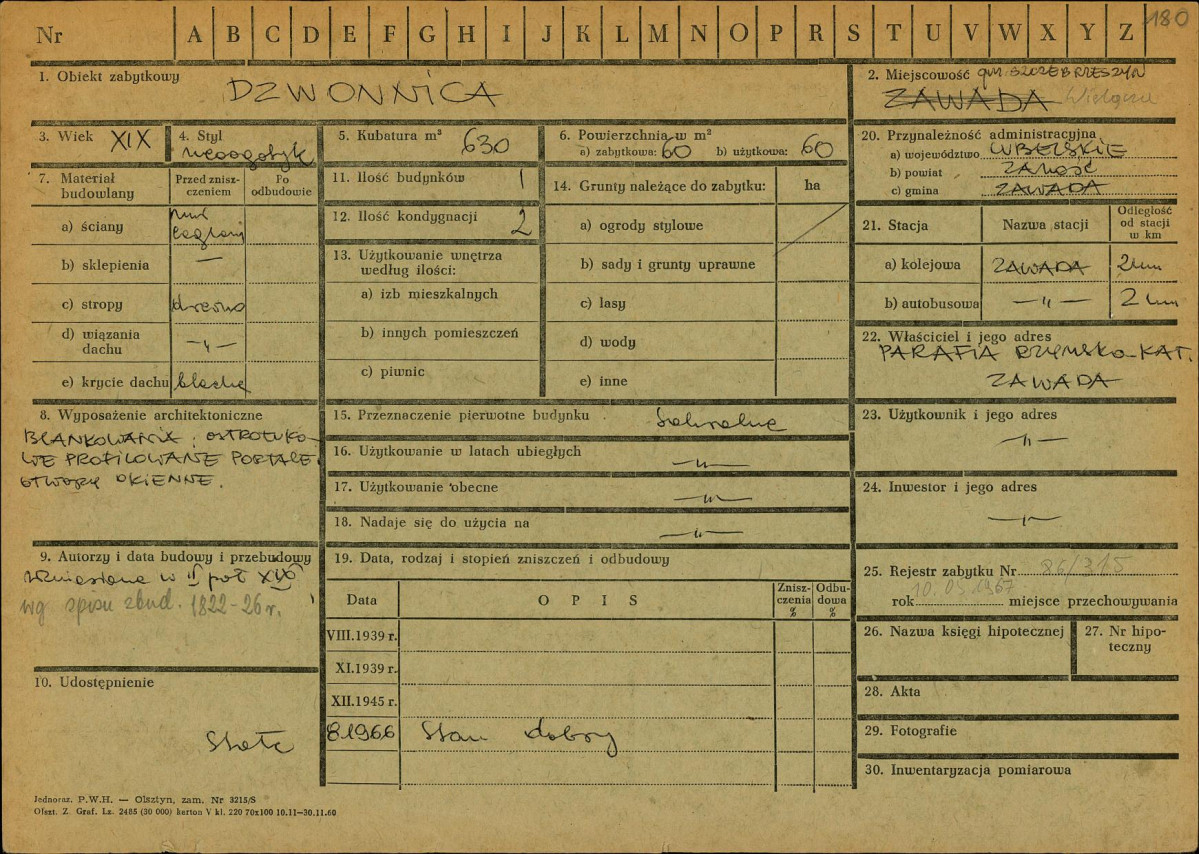 Nr A B C D E F G H I J K L M N O P R S T U V W X Y Z 180
1. Obiekt zabytkowy
DZWONNICA
2. Miejscowość gm. SZCZEBRZESZYN
ZAWADA Wielącza
3. Wiek XIX
4. Styl
neogotyk
5. Kubatura m³ 630
6. Powierzchnia w m²
a) zabytkowa: 60 b) użytkowa: 60
7. Materiał budowlany
Przed zniszczeniem
Po odbudowie
a) ściany mur
b) sklepienia —
c) stropy drewno
d) wiązania dachu —„—
e) krycie dachu blacha
8. Wyposażenie architektoniczne
BLANKOWANIA, OSTROŁUKO-
WE PROFILOWANE PORTALE,
OTWORY OKIENNE.
9. Autorzy i data budowy i przebudowy
wzniesiona w II poł XIX
wg spisu zbud. 1822-26 r.
10. Udostępnienie
Stałe
11. Ilość budynków 1
12. Ilość kondygnacji 2
13. Użytkowanie wnętrza
według ilości:
a) izb mieszkalnych
b) innych pomieszczeń
c) piwnic
14. Grunty należące do zabytku: ha
a) ogrody stylowe
b) sady i grunty uprawne
c) lasy
d) wody
e) inne
15. Przeznaczenie pierwotne budynku sakralne
16. Użytkowanie w latach ubiegłych —„—
17. Użytkowanie obecne —„—
18. Nadaje się do użycia na —„—
19. Data, rodzaj i stopień zniszczeń i odbudowy
Data OPIS Zniszczenia % Odbudowa %
VIII.1939 r.
XI.1939 r.
XII.1945 r.
8.1966 Stan dobry
20. Przynależność administracyjna
a) województwo LUBELSKIE
b) powiat ZAMOŚĆ
c) gmina ZAWADA
21. Stacja Nazwa stacji Odległość od stacji w km
a) kolejowa ZAWADA 2 km
b) autobusowa —„— 2 km
22. Właściciel i jego adres
PARAFIA RZYMSKO-KAT.
ZAWADA
23. Użytkownik i jego adres
—„—
24. Inwestor i jego adres
—„—
25. Rejestr zabytku Nr 86/315
rok 10.05.1967 miejsce przechowywania
26. Nazwa księgi hipotecznej
27. Nr hipoteczny
28. Akta
29. Fotografie
30. Inwentaryzacja pomiarowa
Jednoraz. P.W.H. — Olsztyn, zam. Nr 3215/S
Olszt. Z. Graf. Lz. 2485 (30 000) karton V kl. 220 70x100 10.11—30.11.60